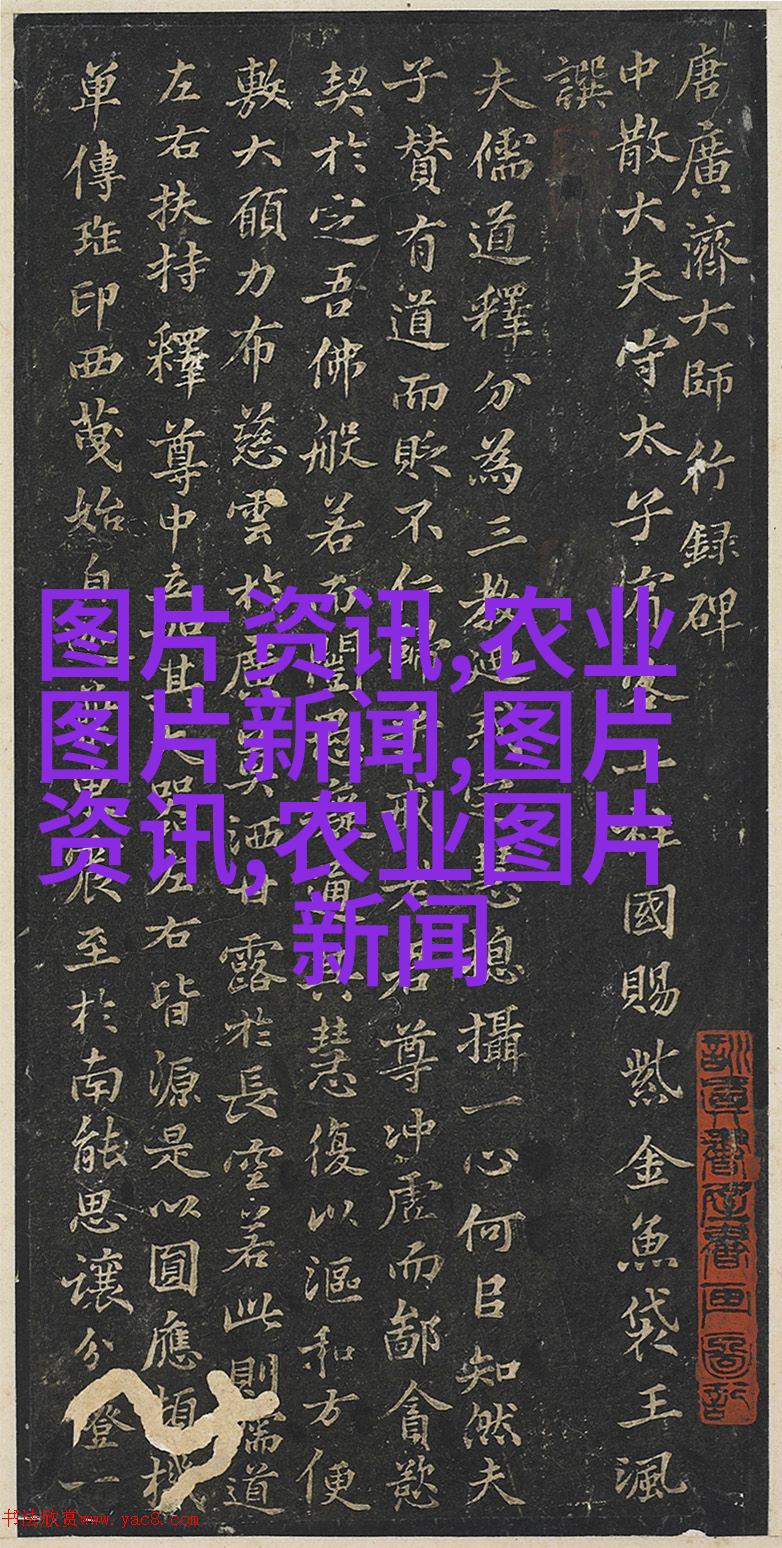 唐廣濟大師行録碑
中散大夫守太子賓客上柱國賜紫金魚袋王渢
譔
夫儒道釋分為三教揔攝一心何㠯知然夫
子賛有道而貶不仁尊冲虛而鄙貪慾
契於㝎吾佛般若慧復以漚和方便
敷大願力布慈雲於廣洒甘露於長空若此則儒道
左右扶持釋尊中左右皆源是以圓應頓機
單傳印西始自至於南能思讓分燈一
图片资讯,农业
图片新闻,图片
资讯,农业图片
新闻
书法欣赏www.yac8.com